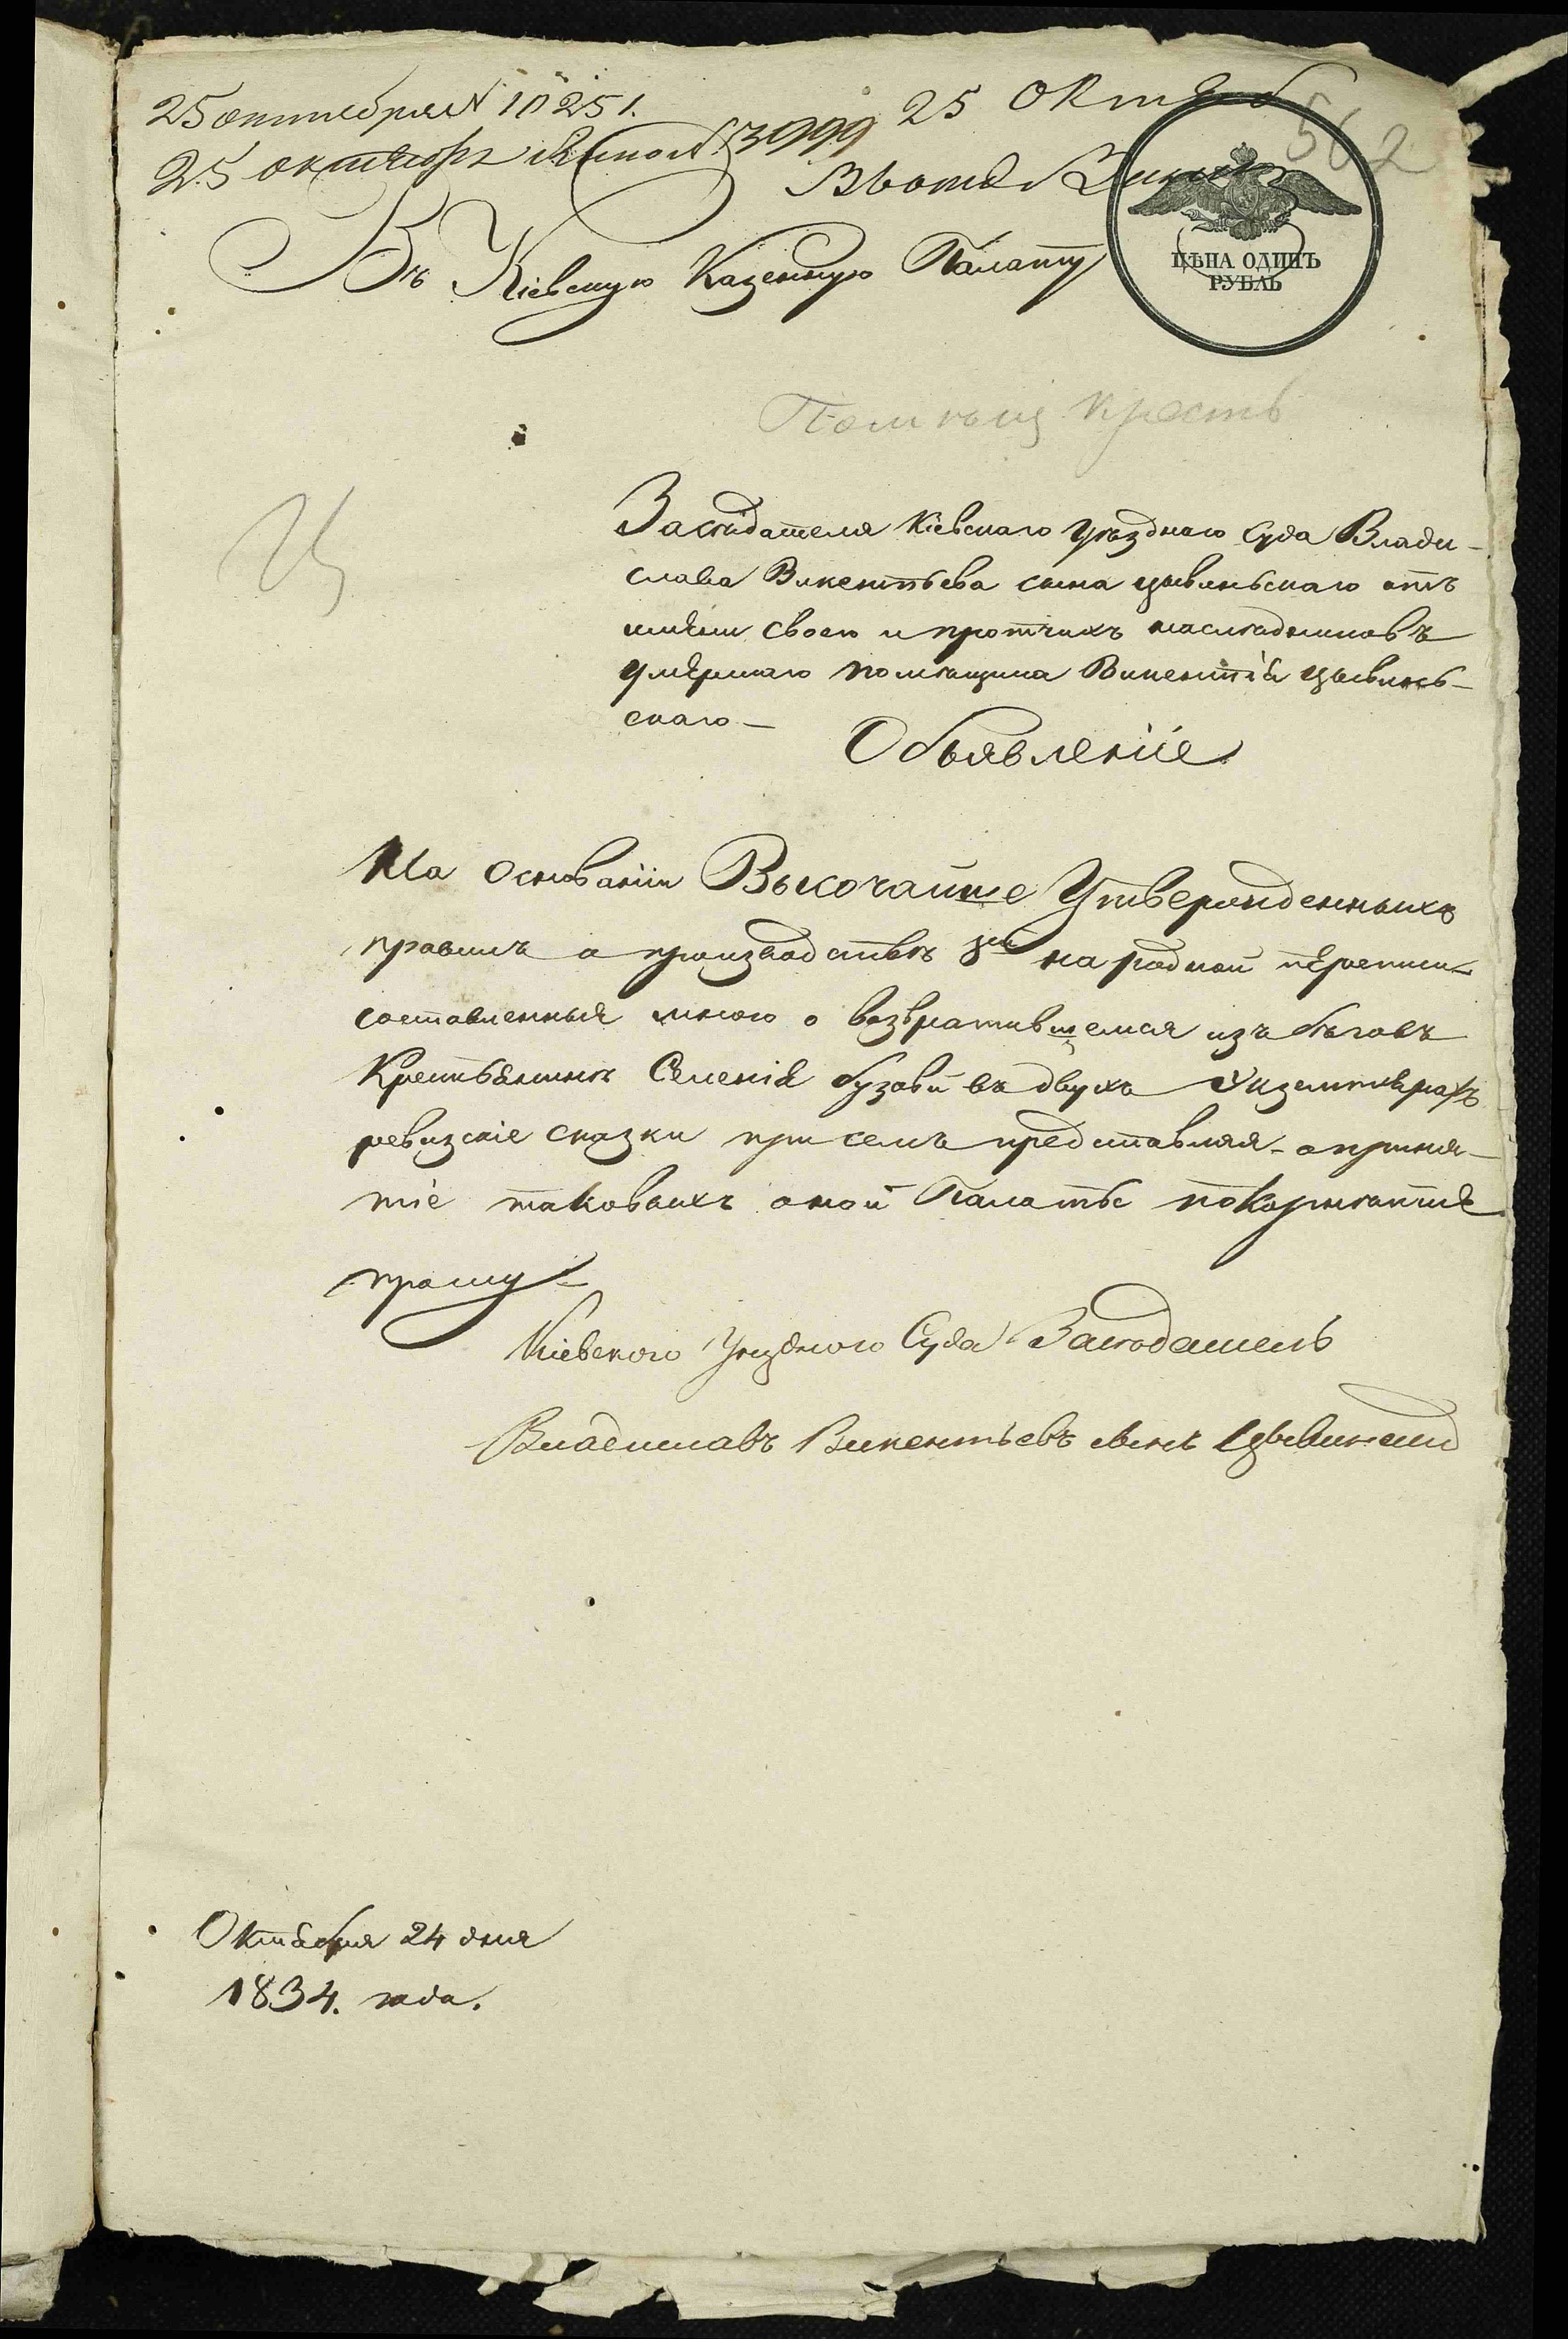 25 октября N 10251.
25 октября N 3999
25 Октяб
562
Въ Кіевскую Казенную Палату
ЦѢНА ОДИНЪ
РУБЛЬ
Помѣщ крест
Ц
Засѣдателя Кіевскаго уѣзднаго Суда Влади-
слава Викентьева сына цывиньскаго отъ
имяни своего и протчихъ наслѣдниковъ
умершаго помѣщика Викентія цывинь-
скаго —
Объявленіе
На Основаніи Высочайше Утвержденныхъ
правилъ о производствѣ 8й народной переписи
составленныя мною о возвратившемся изъ бѣговъ
Крестьянинѣ Селенія бузовй въ двухъ Экземплярахъ
ревизскіе сказки при семъ представляя - о приня-
тіе таковыхъ оной Палатѣ покорнѣйше
прошу —
Кіевского Уѣздного Суда Засѣдатель
Владиславъ Викентьевъ сынъ Цывинскій
Октября 24 дня
1834. года.